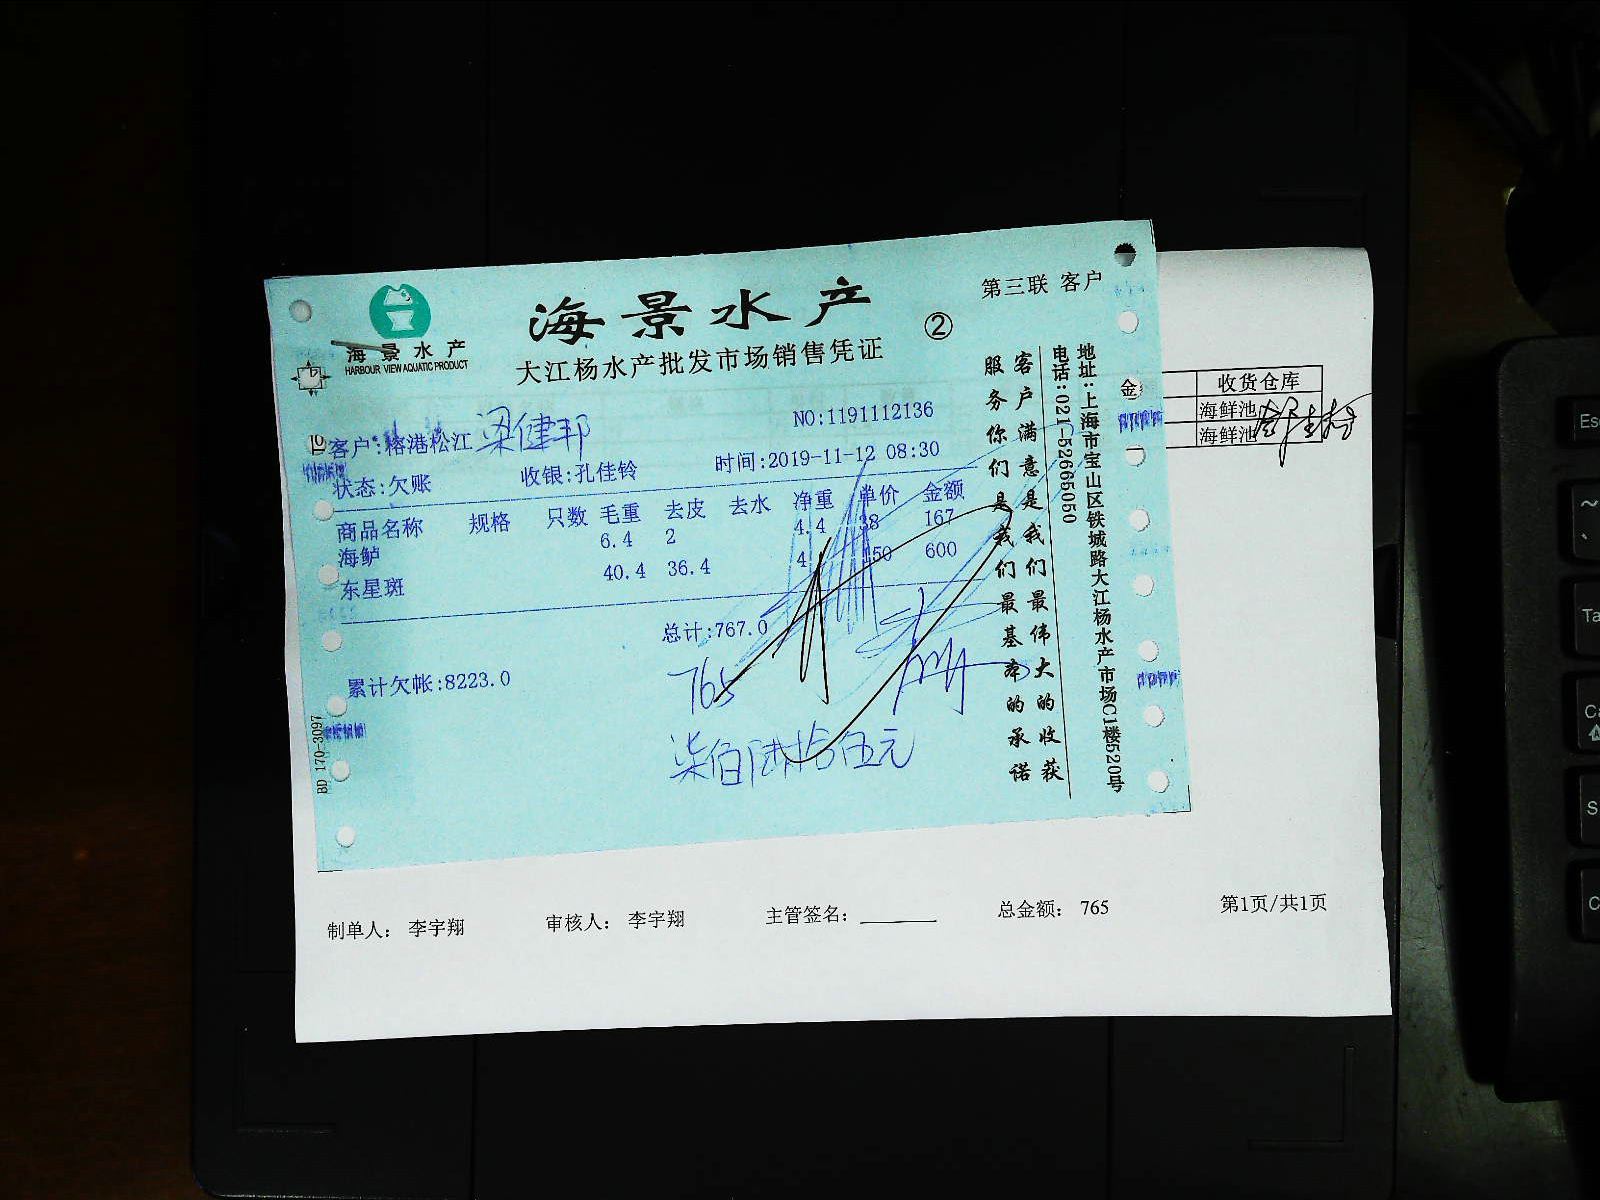 海景水产
HARBOUR VIEW AQUATIC PRODUCT
海景水产
大江杨水产批发市场销售凭证
②
第三联 客户
NO:1191112136
客户:榕港松江 梁健邦
状态:欠账 收银:孔佳铃 时间:2019-11-12 08:30
商品名称 规格 只数 毛重 去皮 去水 净重 单价 金额
海鲈 6.4 2 4.4 38 167
东星斑 40.4 36.4 4 150 600
总计:767.0
累计欠帐:8223.0
765
柒佰陆拾伍元
客户满意是我们最伟大的收获
服务你们是我们最基本的承诺
地址:上海市宝山区铁城路大江杨水产市场C1楼520号
电话:021-52665050
BD 170-3097
金
收货仓库
海鲜池
海鲜池
制单人: 李宇翔 审核人: 李宇翔 主管签名: 总金额: 765 第1页/共1页
Esc